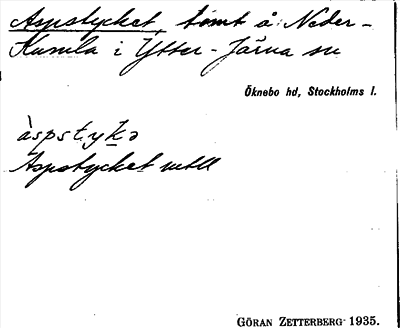 Aspstycket, tomt å Neder-
Kumla i Ytter-Järna sn
Öknebo hd, Stockholms l.
àspstykə
Aspstycket uttl
GÖRAN ZETTERBERG 1935.